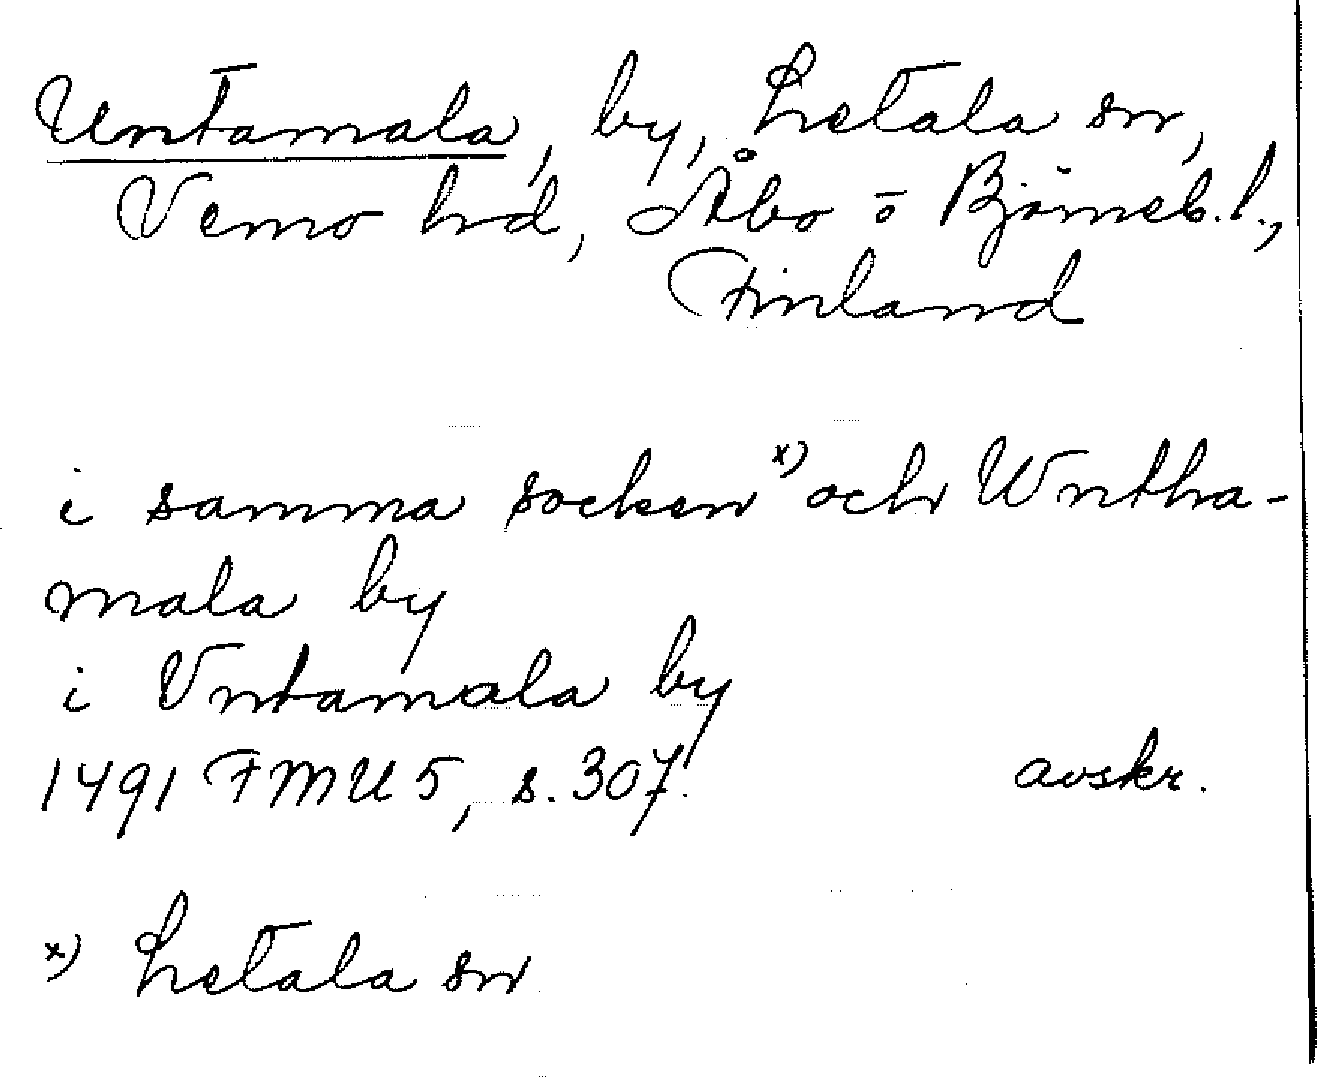 Untamala, by, Letala sn,
Vemo hd, Åbo o Björneb. l.,
Finland
i samma socken x) och Wntha-
mala by
i Vntamala by
1491 FMU 5, s. 307.
avskr.
x) Letala sn